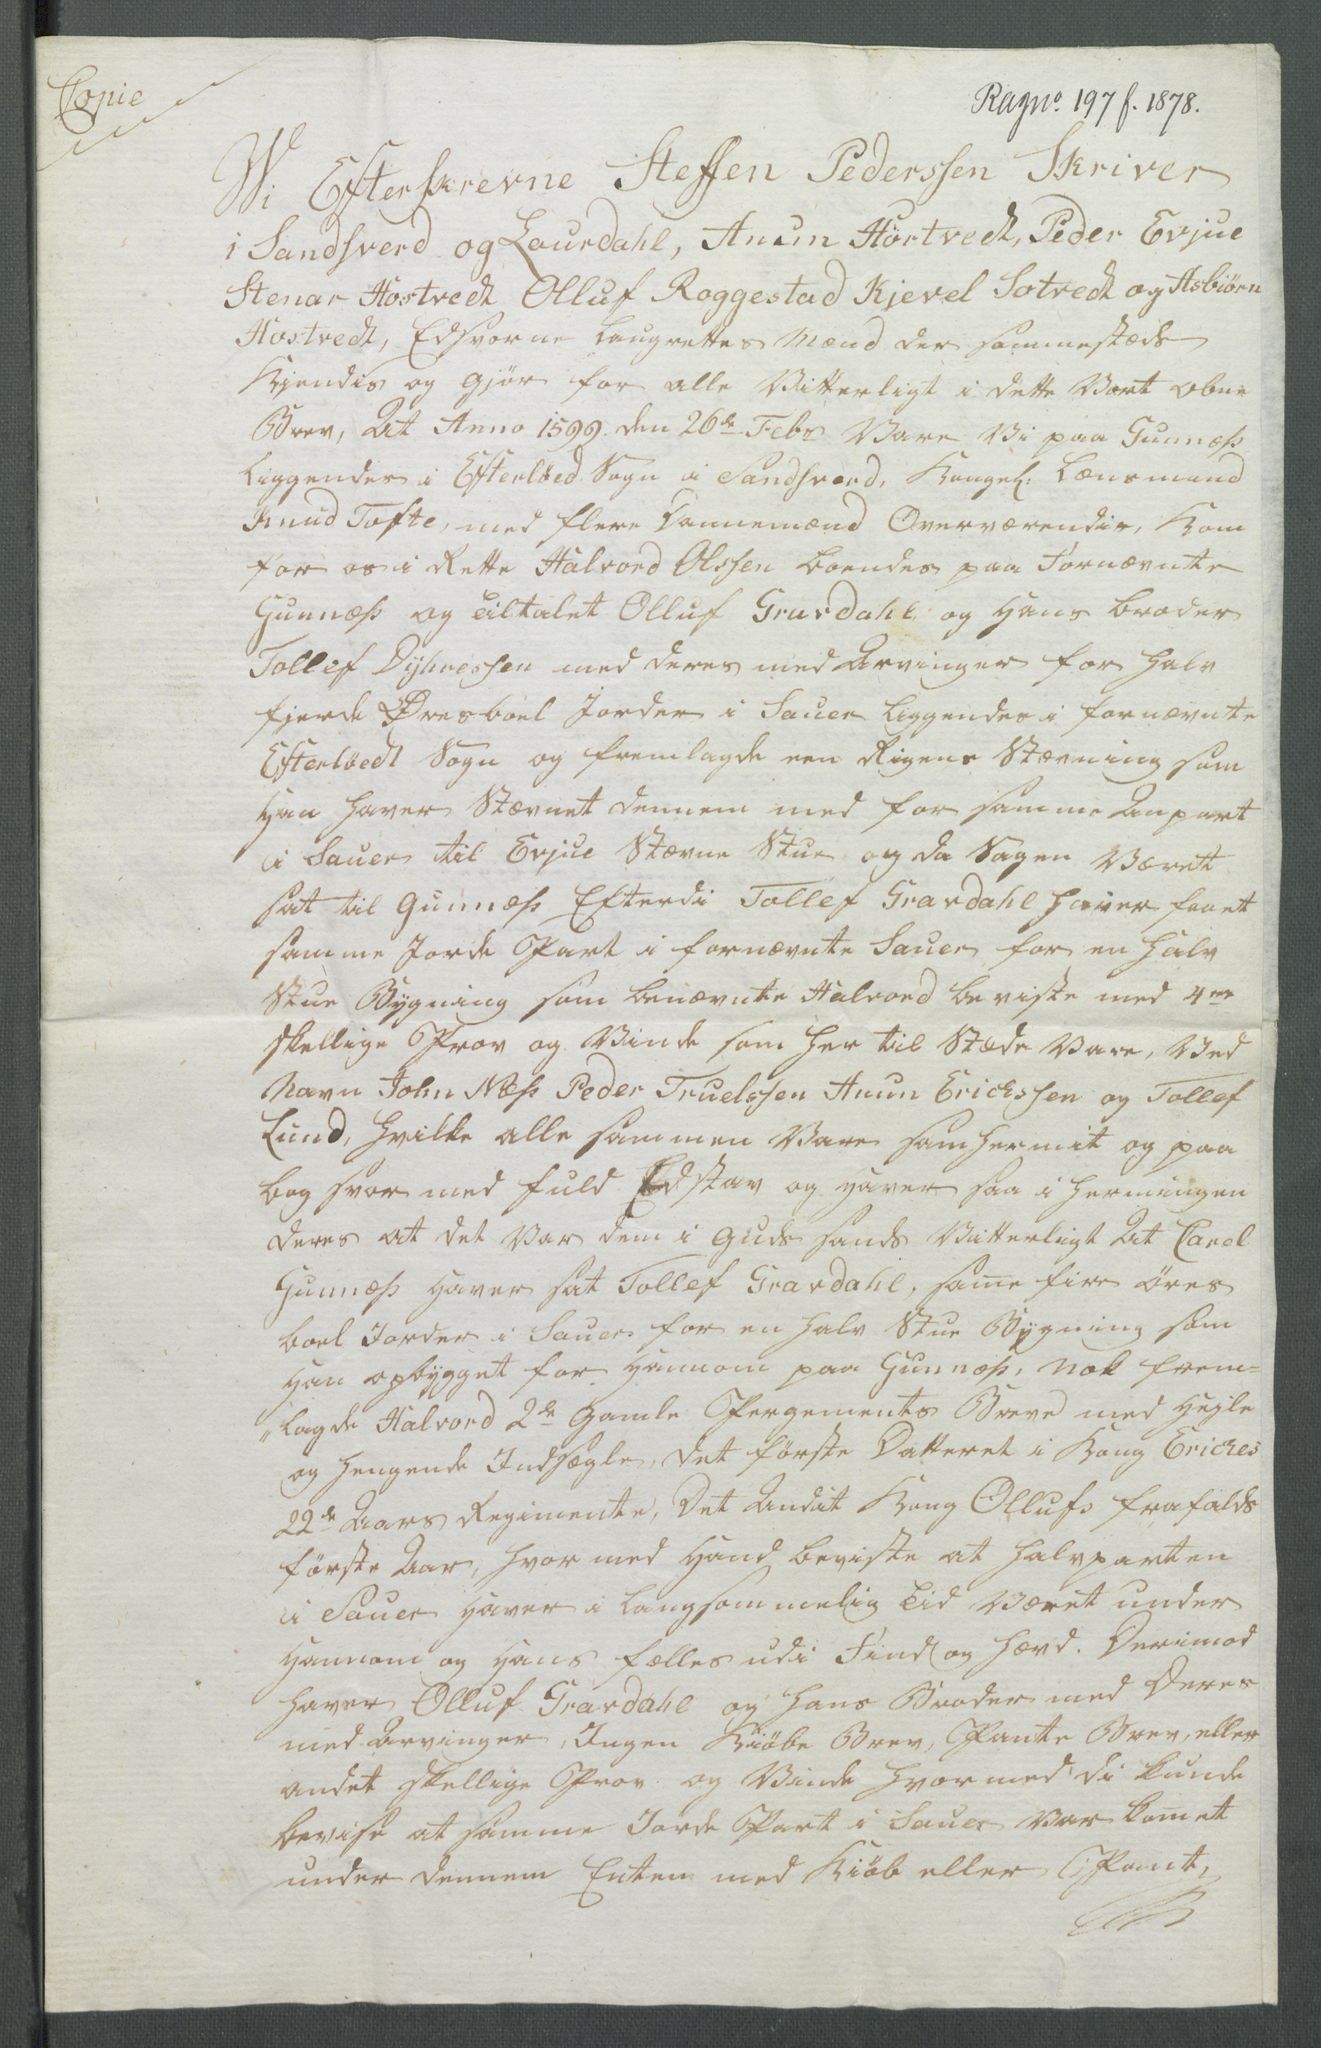 Copie
Ragno. 197 f. 1878.
Wi Efterskrevne Steffen Pederssen Skriver
i Sandsverd og Laurdahl, Anun Hørtvedt, Peder Evjue
Stenar Hostvedt Olluf Roggestad Kjevel Sotvedt og Asbiørn
Hostvedt, Edsvorne Laugrettes Mænd der sammestæds
Kjendis og gjør for alle Vitterligt i dette Vort obne
Brev, At Anno 1599. den 26de Febr Vare Vi paa Gunnæs
Liggendes i Efterløed Sogn i Sandsverd, Kongel: Lænsmand
Knud Tofte, med flere Dannemænd Overværendis, Kom
for os i Rette Halvord Olssen boendes paa Fornævnte
Gunnæs og tiltalet Olluf Gravdahl og hans broder
Tollef Dyhressen med deres med Arvinger for halv
fjerde Øresboel Jorder i Sauer liggendes i fornævnte
Efterløedt Sogn og fremlagde een Rigens Stævning som
han haver Stævnet dennem med for samme Anpart
i Sauer til Evjue Stævne Stue og da Sagen Været
sat til Gunnæs Efterdi Tollef Gravdahl haver faaet
samme Jorde Part i fornævnte Sauer for en halv
Stue Bygning som benævnte Halvord beviste med 4re
skellige Prov og Vinde som her til Stæde Vare, Ved
Navn John Næs Peder Truelssen Anun Erichssen og Tollef
Lund, hvilke alle sammen Vare samhermit og paa
bog svor med fuld Edstav og haver saa i hermingen
deres at det Var dem i Guds sands Vitterligt At Carel
Gunnæs haver sat Tollef Gravdahl, samme fire øres
boel Jorder i Sauer for en halv Stue Bygning som
han opbygget for hannom paa Gunnæs, nok frem=
„lagde Halvord 2de gamle Pergements Breve med hejle
og hengende Indsægle, det første Datteret i Kong Eriches
22de Aars Regimente, Det Andet Kong Ollufs frafalds
første Aar, hvor med hand beviste at halvparten
i Sauer haver i langsommelig tid Været under
hannom og hans fælles udi Find og hævd. Derimod
haver Olluf Gravdahl og hans Broder med Deres
med Arvinger, Ingen Kiøbe Brev, Pante Brev, eller
andet skellige Prov og Vinde hvormed di kunde
bevise at samme Jorde Part i Sauer var komet
under dennem Enten med Kiøb eller Pant,